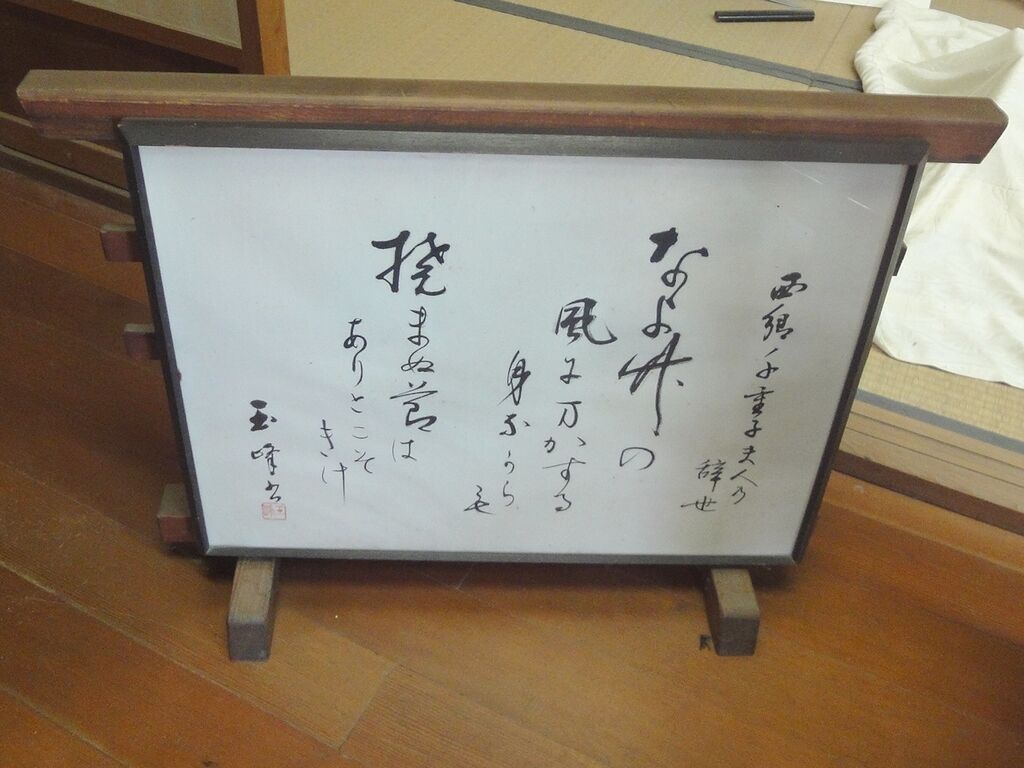 西郷千重子夫人乃
辞世
なよ竹の
風にまかする
身ながら
も
撓まぬ節は
ありとこそ
きけ
玉峰書